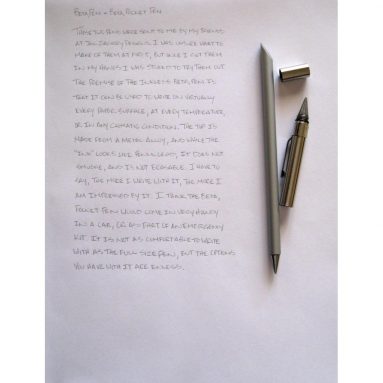 Beta Pen + Beta Pocket Pen
These two pens were sent to me by my friends
at Jet Pens. I was unsure what to
make of them at first, but once I got them
in my hands I was stoked to try them out.
The premise of the inkless Beta Pen is
that it can be used to write on virtually
every paper surface, at every temperature,
or in any climatic condition. The tip is
made from a metal alloy, and while the
"ink" looks like pencil lead, it does not
smudge, and is not erasable. I have to
say, the more I write with it, the more I
am impressed by it. I think the Beta
Pocket Pen would come in very handy
in a car, or as part of an emergency
kit. It is not as comfortable to write
with as the full size pen, but the options
you have with it are endless.